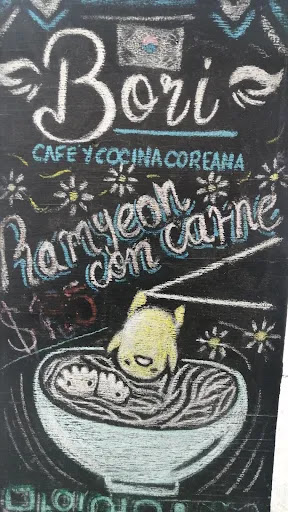 Bori
CAFE Y COCINA COREANA
Ramyeon
con carne